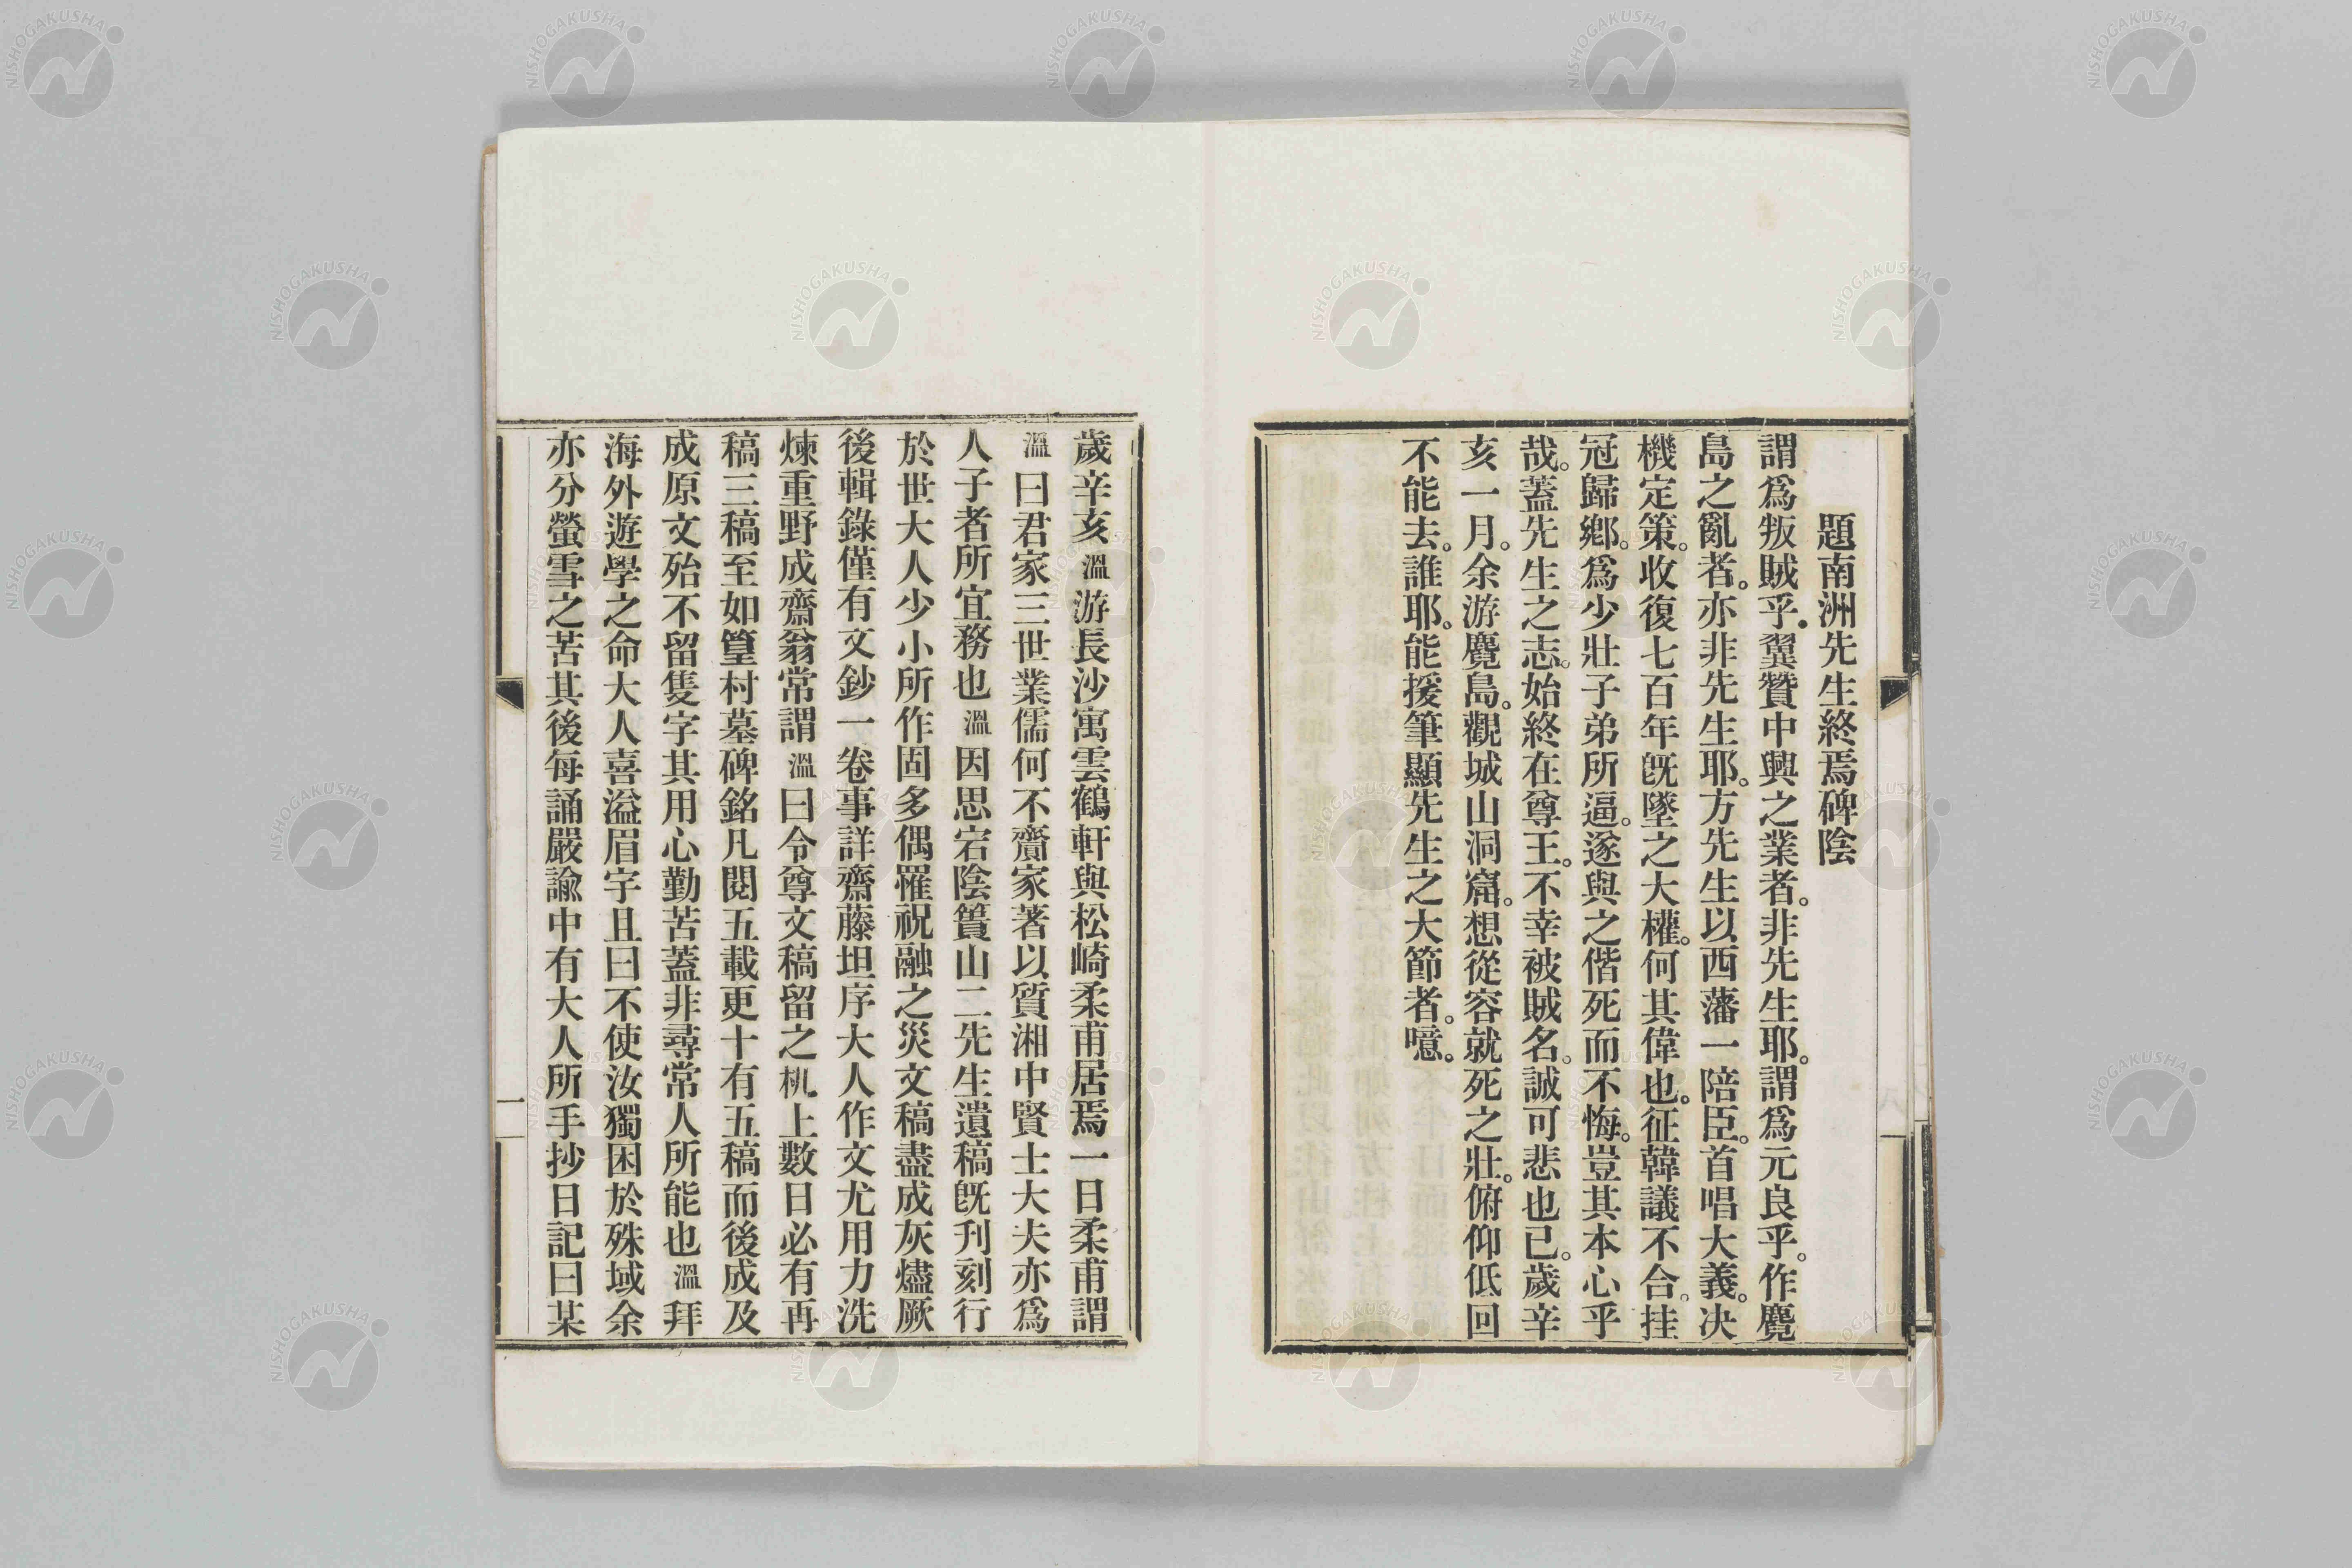 題南洲先生終焉碑陰
謂爲叛賊乎。翼贊中興之業者。非先生耶。謂爲元良乎。作麑
島之亂者。亦非先生耶。方先生以西藩一陪臣。首唱大義。決
機定策。收復七百年旣墜之大權。何其偉也。征韓議不合。挂
冠歸鄕。爲少壯子弟所逼。遂與之偕死而不悔。豈其本心乎
哉。蓋先生之志。始終在尊王。不幸被賊名。誠可悲也已。歲辛
亥一月。余游麑島。觀城山洞窟。想從容就死之壯。俯仰低回
不能去。誰耶。能援筆顯先生之大節者。噫。
歲辛亥溫游長沙寓雲鶴軒與松崎柔甫居焉一日柔甫謂
溫曰君家三世業儒何不齎家著以質湘中賢士大夫亦爲
人子者所宜務也溫因思宕陰篁山二先生遺稿旣刊刻行
於世大人少小所作固多偶罹祝融之災文稿盡成灰燼厥
後輯錄僅有文鈔一卷事詳齋藤坦序大人作文尤用力洗
煉重野成齋翁常謂溫曰令尊文稿留之机上數日必有再
稿三稿至如篁村墓碑銘凡閱五載更十有五稿而後成及
成原文殆不留隻字其用心勤苦蓋非尋常人所能也溫拜
海外遊學之命大人喜溢眉宇且曰不使汝獨困於殊域余
亦分螢雪之苦其後每誦嚴諭中有大人所手抄日記曰某
一
NISHOGAKUSHA